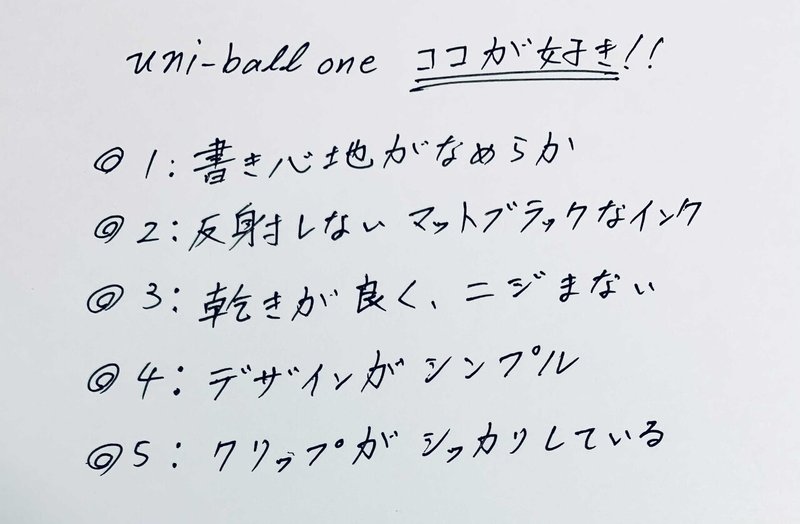 uni-ball one ココが好き!!
◎ 1: 書き心地がなめらか
◎ 2: 反射しない マットブラックなインク
◎ 3: 乾きが良く、ニジまない
◎ 4: デザインが シンプル
◎ 5: クリップが シッカリしている